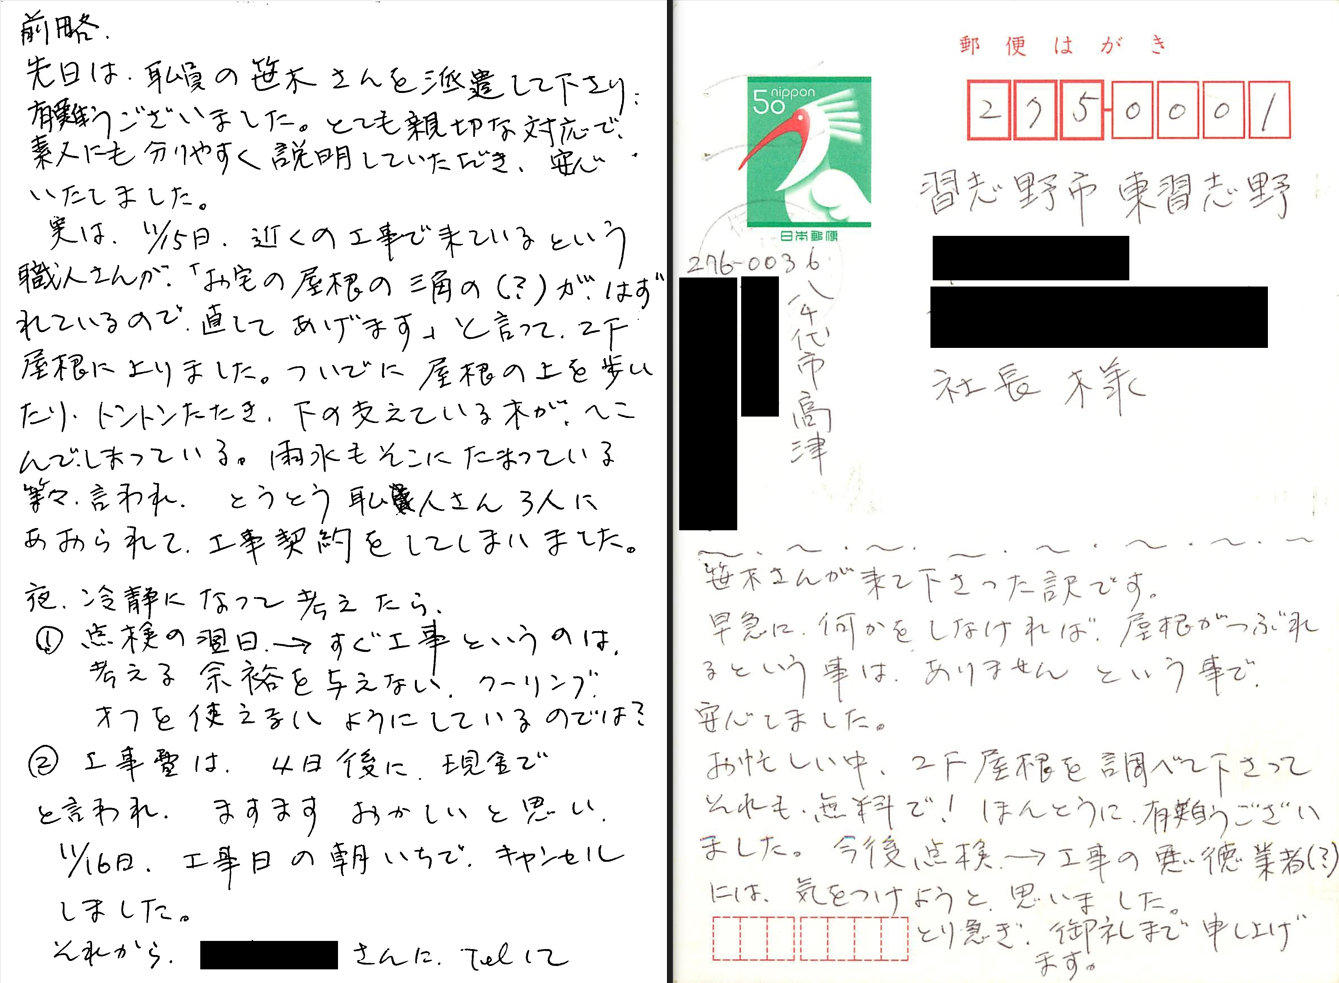 前略.
先日は、職員の笹木さんを派遣して下さり、
有難うございました。とても親切な対応で、
素人にも分りやすく説明していただき、安心
いたしました。
実は、11/15日、近くの工事で来ているという
職人さんが、「お宅の屋根の三角の(?)が、はず
れているので、直してあげます」と言って、2F
屋根に上りました。ついでに屋根の上を歩い
たり、トントンたたき、下の支えている木が、へこ
んでしまっている。雨水もそこにたまっている
等々、言われ、とうとう職人さん3人に
あおられて、工事契約をしてしまいました。
夜、冷静になって考えたら、
① 点検の翌日→すぐ工事というのは、
考える余裕を与えない、クーリング
オフを使えないようにしているのでは?
② 工事費は、4日後に、現金で
と言われ、ますますおかしいと思い、
11/16日、工事日の朝いちで、キャンセル
しました。
それから、さんに、Telして
郵便はがき
50 nippon
日本郵便
275-0001
習志野市東習志野
社長様
276-0036
八千代市高津
笹木さんが来て下さった訳です。
早急に、何かをしなければ、屋根がつぶれ
るという事は、ありませんという事で、
安心しました。
お忙しい中、2F屋根を調べて下さって
それも、無料で!ほんとうに、有難うござい
ました。今後点検→工事の悪徳業者(?)
には、気をつけようと、思いました。
とり急ぎ、御礼まで申し上げ
ます。